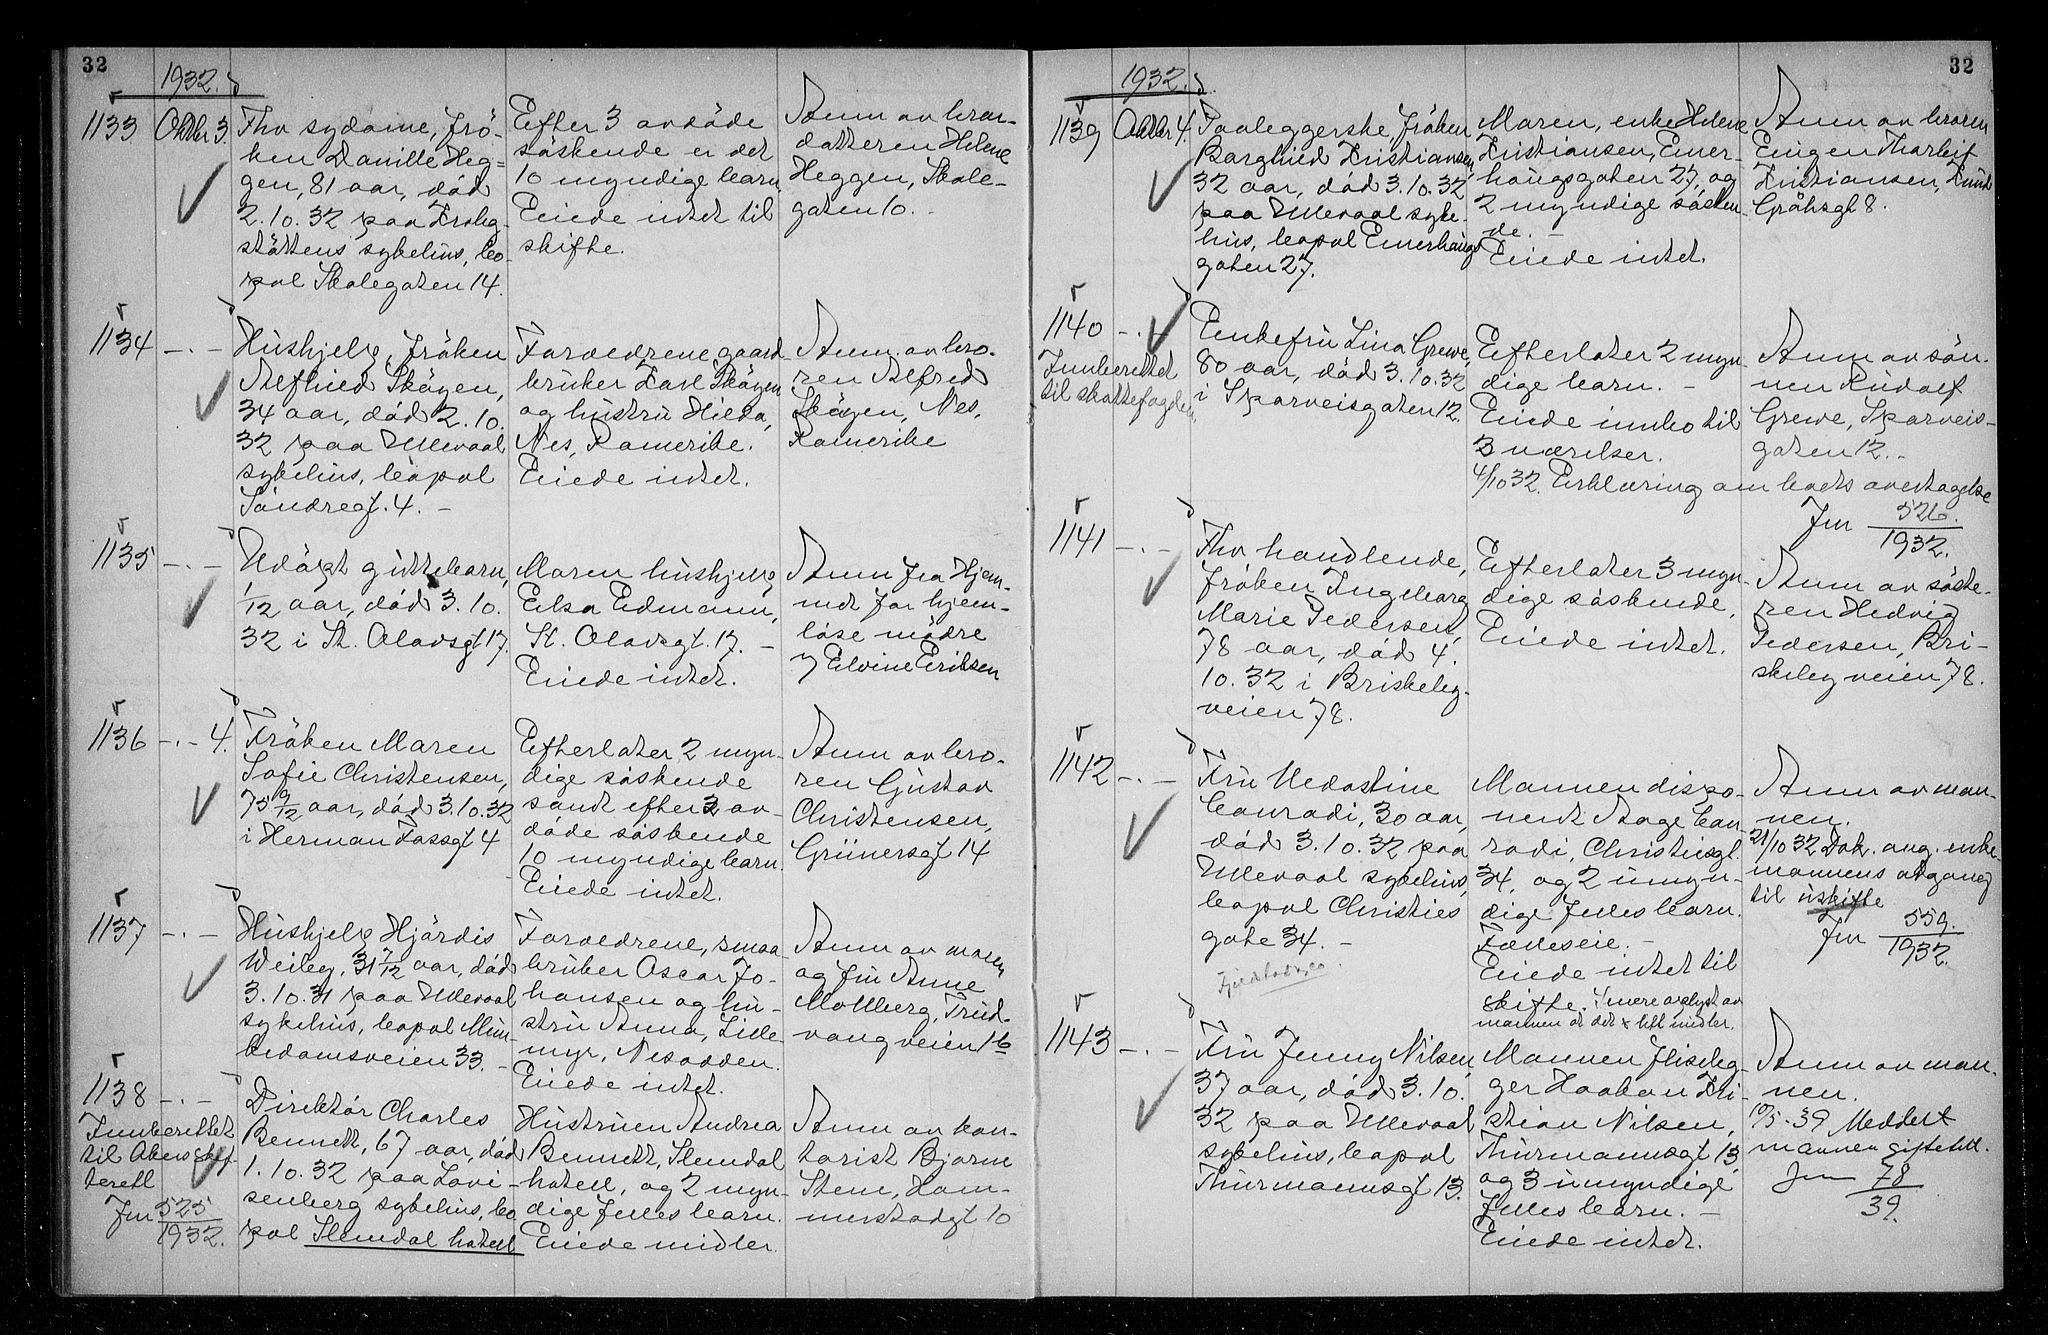 32
1932.
1133
Oktbr 3.
Fhv sydame, frö-
ken Danille Heg-
gen, 81 aar, död
2.10.32 paa Krohg-
støttens sykehus, bo-
pæl Skolegaten 14.
Efter 3 avdöde
söskende er det
10 myndige barn
Eiede intet til
skifte.
Anm. av bror-
datteren Helene
Heggen, Skole-
gaten 10.
1134 -.-
Hushjelp, fröken
Alfhied Skögen,
34 aar, död 2.10.
32 paa Ullevaal
sykehus, bopæl
Søndregt. 4. -
Forældrene gaard-
bruker Karl Skögen
og hustru Hilda,
Nes, Romerike.
Eiede intet.
Anm. av bro-
ren Alfred
Skögen, Nes,
Romerike
1135 -.-
Udöpt guttebarn,
1/12 aar, död 3.10.
32 i St. Olavsgt 17.
Moren hushjelp
Elsa Edmann,
St. Olavsgt. 17. -
Eiede intet.
Anm fra Hjem-
met for hjem-
löse mödre
v Elvine Eriksen
1136 -.- 4.
Fröken Maren
Sofie Christensen,
75 9/12 aar, död 3.10.32
i Herman Fossgt 4
Efterlater 2 myn-
dige söskende
samt efter 2 av-
döde söskende
10 myndige barn.
Eiede intet.
Anm av bro-
ren Gustav
Christensen,
Grünersgt 14
1137 -.-
Hushjelp Hjördis
Weiby, 31 7/12 aar, död
3.10.31 paa Ullevaal
sykehus, bopæl Mun-
kedamsveien 33. -
Forældrene, smaa
bruker Oscar Jo-
hansen og hu-
stru Anna, Lille-
myr, Nesodden.
Eiede intet.
Anm av moren
og fru Anne
Mollberg, Trud-
vangveien 16
1138 -.-
Innberettet
til Akers skif-
terett
Jnr 525/1932.
Direktör Charles
Bennett, 67 aar, död
1.10.32 paa Lovi-
senberg sykehus, bo
pæl Slemdal hotell
Hustruen Andrea
Bennett, Slemdal
hotell, og 2 myn-
dige fælles barn.
Eiede midler.
Anm av kon-
torist Bjarne
Stene, Ham-
merstadgt 10
32
1932.
1139
Oktbr 4.
Toaleggerske, fröken
Borghied Kristiansen,
32 aar, död 3.10.32
paa Ullevaal syke-
hus, bopæl Enerhaugs
gaten 27.
Moren, enke Helene
Kristiansen, Ener-
haugsgaten 27, og
2 myndige sösken-
de. -
Eiede intet.
Anm av broren
Eugen Thorleif
Kristiansen, Knud
Gråhsgt 8.
1140 -.-
Innberettet
til skattefogden.
Enkefru Lina Grewe,
80 aar, död 3.10.32
i Sporveisgaten 12.
Efterlater 2 myn-
dige barn. -
Eiede innbo til
3 værelser.
4/10 32. Erklæring om boets overtagelse
Jnr 526./1932.
Anm av sön-
nen Rudolf
Grewe, Sporveis-
gaten 12. -
1141 -.-
Fhv handlende,
fröken Ingeborg
Marie Pedersen,
78 aar, död 4.
10.32 i Briskeby-
veien 78.
Efterlater 3 myn-
dige söskende,
Eiede intet.
Anm av söste-
ren Hedvig
Pedersen, Bri-
skeby veien 78.
1142 -.-
Fru Nedostine
Conradi, 30 aar,
död 3.10.32 paa
Ullevaal sykehus,
bopæl Christies
gate 34. -
Mannen dispo-
nent Aage Con-
radi, Christiesgt.
34, og 2 umyn-
dige fælles barn.
Fælleseie. -
Eiede intet til
skifte. Senere oplyst av
mannen at det x litt midler.
Anm av man-
nen.
21/10 32 Dok. ang. enke-
mannens adgang
til uskifte
Jnr 559./1932.
1143 -.-
Fru Jenny Nilsen,
37 aar, död 3.10.
32 paa Ullevaal
sykehus, bopæl
Thurmannsgt 13.
Mannen fliseleg-
ger Haakon Kri-
stian Nilsen,
Thurmannsgt 13,
og 3 umyndige
fælles barn. -
Eiede intet.
Anm av man-
nen.
10/5-39 Meddelt
mannen giftetill.
Jnr 78/39.